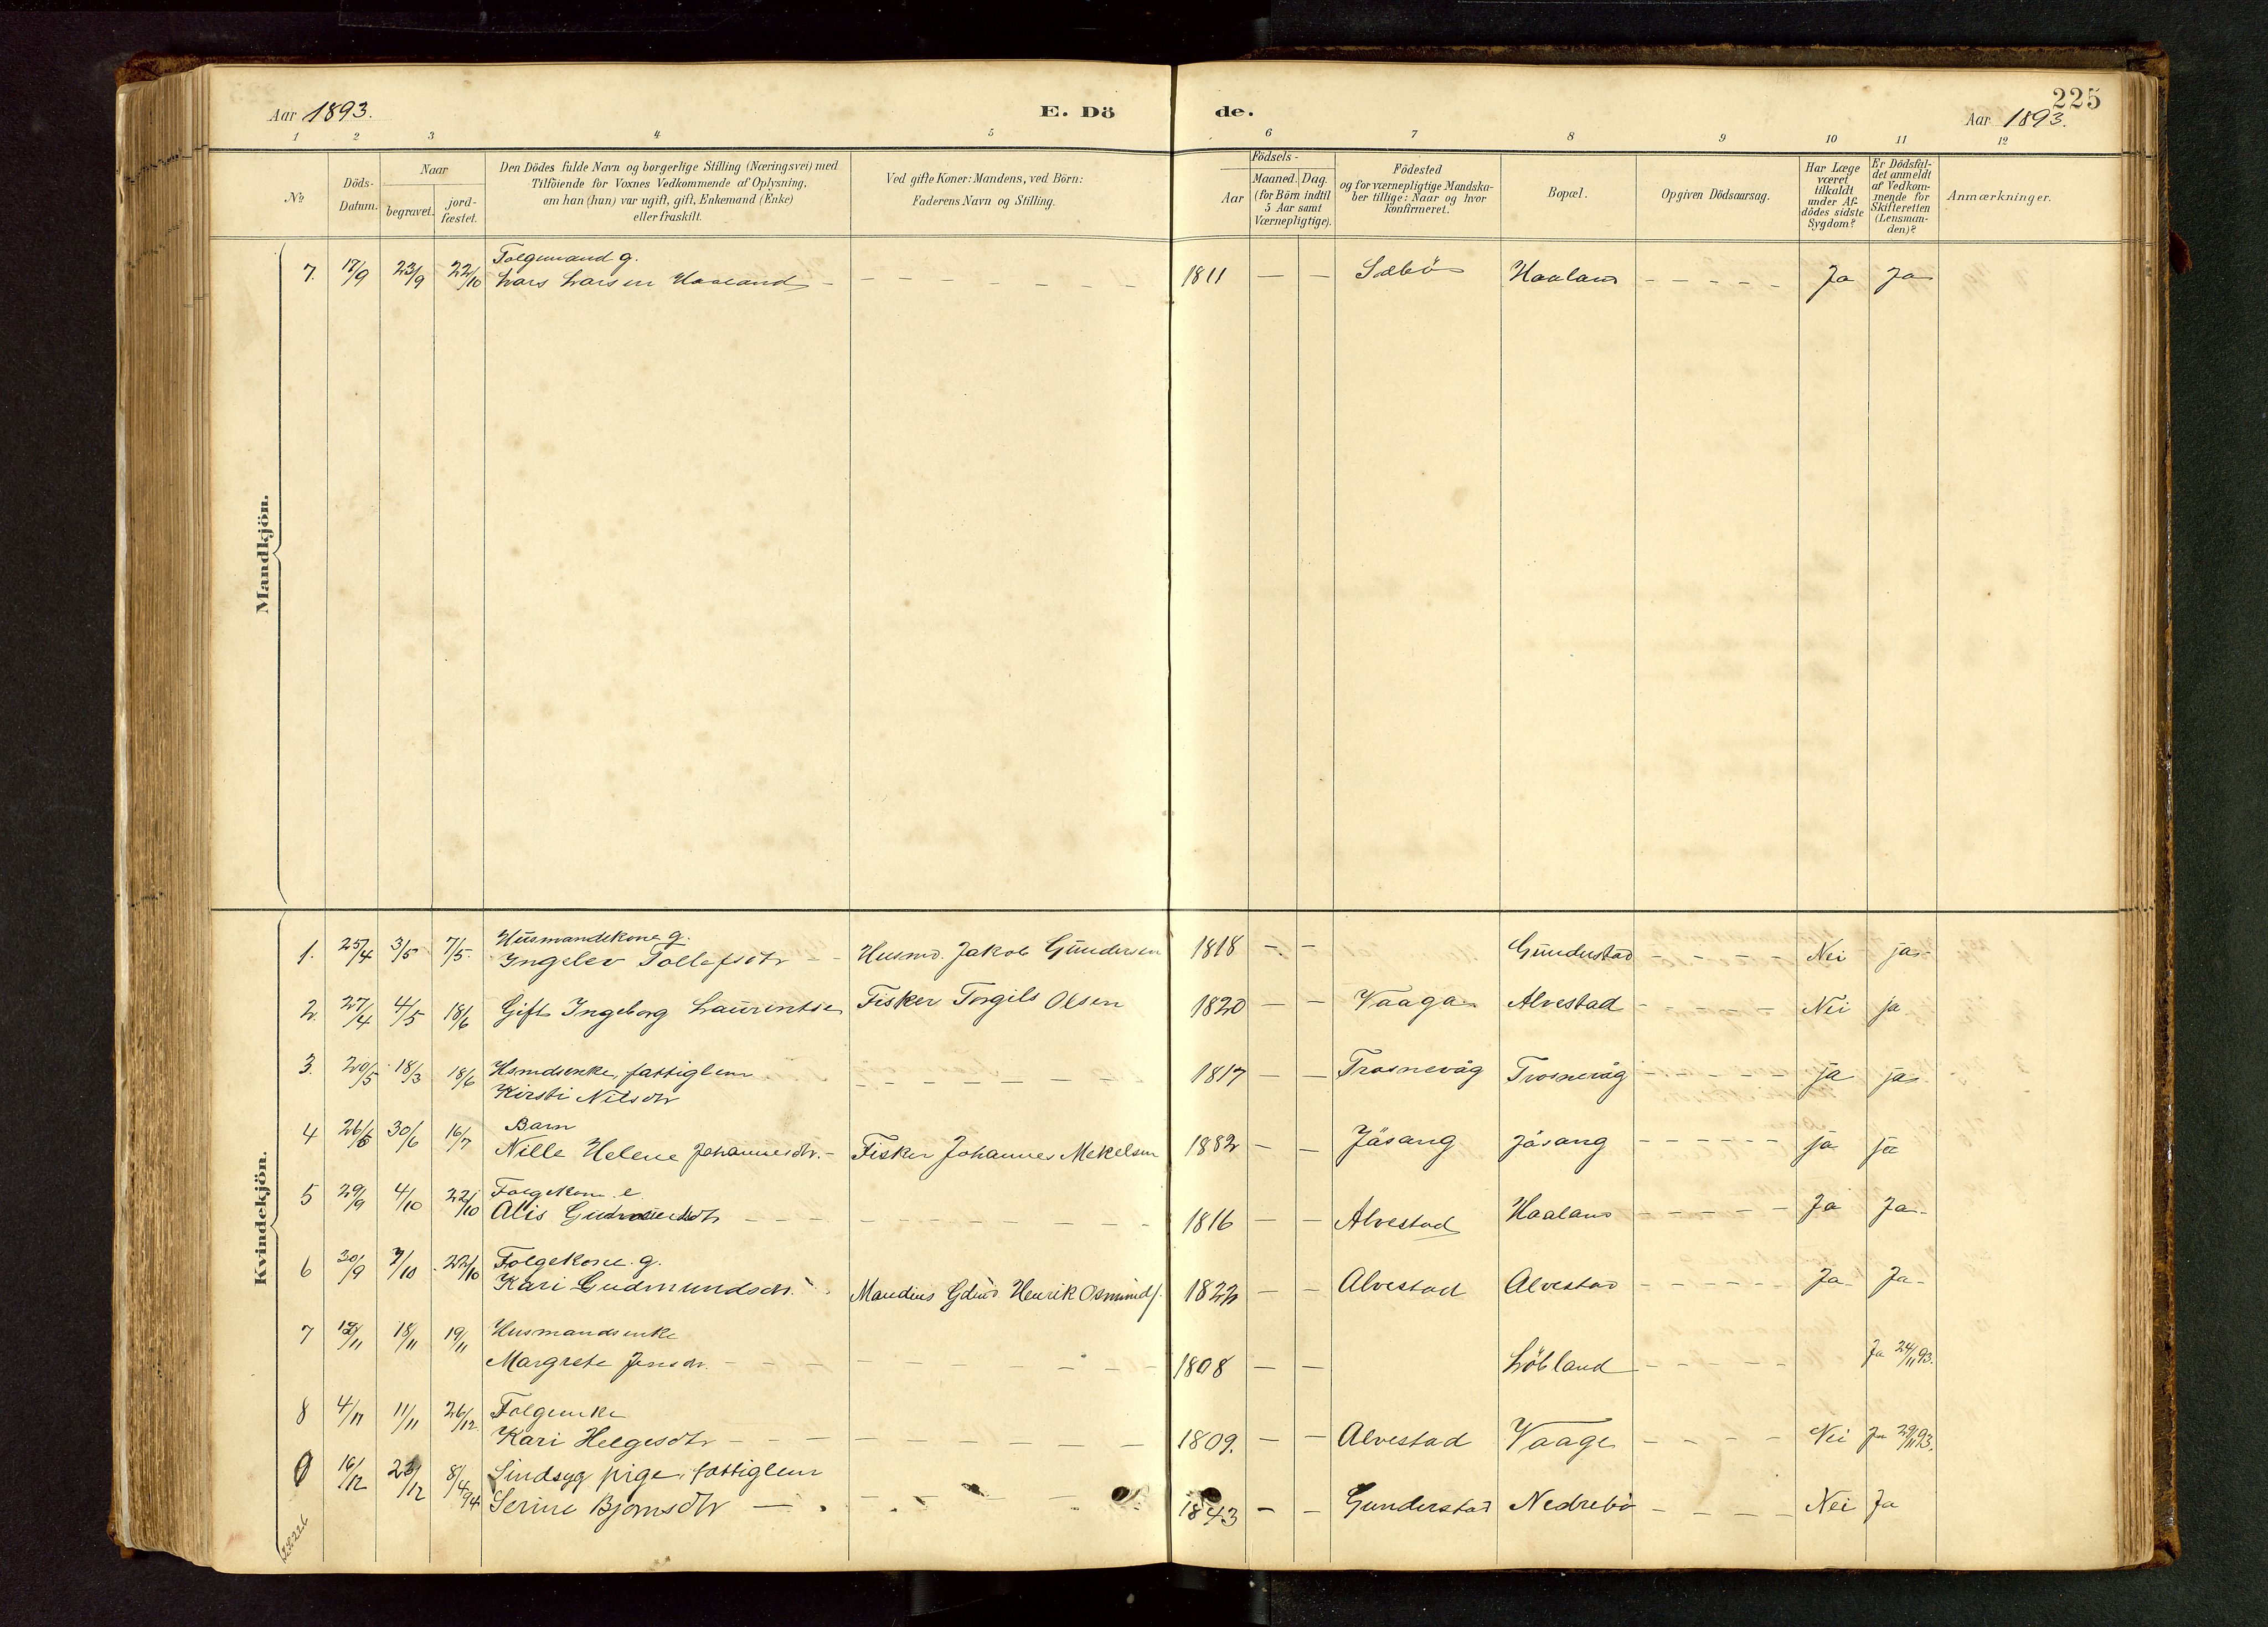 225
Aar 1893. E. Dö de. Aar 1893.
1 2 3 4 5 6 7 8 9 10 11 12
No. Döds-Datum. Naar begravet. jord-fæstet. Den Dödes fulde Navn og borgerlige Stilling (Næringsvei) med Tilföiende for Voxnes Vedkommende af Oplysning, om han (hun) var ugift, gift, Enkemand (Enke) eller fraskilt. Ved gifte Koner: Mandens, ved Börn: Faderens Navn og Stilling. Födsels- Aar Maaned. Dag. (for Börn indtil 5 Aar samt Værnepligtige). Födested og for værnepligtige Mandskaber tillige: Naar og hvor konfirmeret. Bopæl. Opgiven Dödsaarsag. Har Læge været tilkaldt under Afdödes sidste Sygdom? Er Dödsfaldet anmeldt af Vedkommende for Skifteretten (Lensmanden)? Anmærkninger.
Mandkjön.
Folgemand g.
7. 17/9 23/9 22/10 Lars Larsen Haaland - - - - - - 1811 - - Sæbö Haaland - - - - - Ja Ja
Kvindekjön.
Husmandskone g.
1. 25/4 3/5 7/5 Ingelev Tollefsdtr - Husmd. Jakob Gundersen 1818 - - Gunderstad - - - - Nei ja
2. 27/4 4/5 18/6 Gift Ingeborg Laurentse Fisker Torgils Olsen 1820 - - Vaage Alvestad - - - - Nei ja
3. 20/5 18/3 18/6 Hsmdsenke, fattiglem - - - - - - 1817 - - Trosnevåg Trosnevåg - - - - - ja ja
Kirsti Nilsdtr
Barn
4 26/6 30/6 16/7 Nille Helene Johannesdtr. - Fisker Johannes Mekelsen 1882 - - Jäsang Jäsang - - - - - - ja ja
5 29/9 4/10 22/10 Folgekone e.
Alis Gudmundsdtr - - - - - - 1816 - - Alvestad Haaland - - - - - Ja Ja
6 30/9 7/10 22/10 Folgekone g.
Kari Gudmundsdr. Mandens Henrik Osmunds. 1822 - - Alvestad Alvestad - - - - - Ja Ja
7 12/11 18/11 19/11 Husmandsenke
Margrete Jensdr. - - - - - - 1808 - - Löbland - - - - Ja 24/11 93.
8 4/11 11/11 26/12 Folgeenke
Kari Helgesdtr - - - - - - 1809. - - Alvestad Vaage - - - - Nei Ja 29/11 93.
16/12 23/12 8/4 94 Sindsyg pige, fattiglem
Serine Bjørnsdtr - - - - 1843 - - Gunderstad Nedrebö - - - - Nei Ja